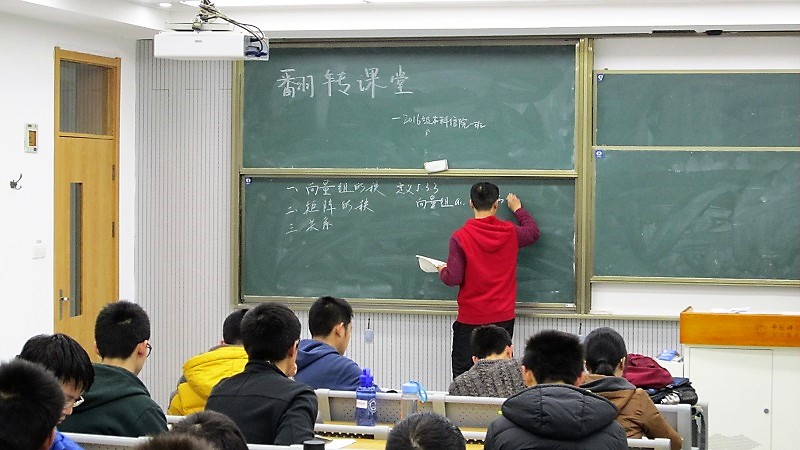 翻转课堂
一2016级本科信院一班
一、向量组的秩 定义3.3.3
二、矩阵的秩 向量组a₁
三、关系